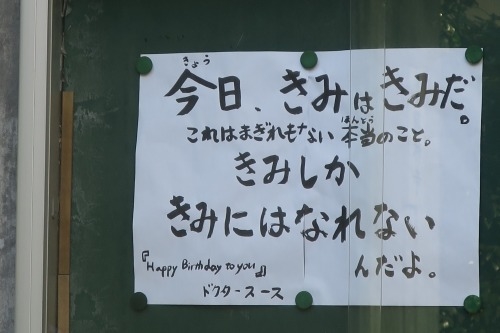 きょう
今日、きみはきみだ。
ほんとう
これはまぎれもない本当のこと。
きみしか
きみにはなれない
んだよ。
『Happy Birthday to you』
ドクタースース